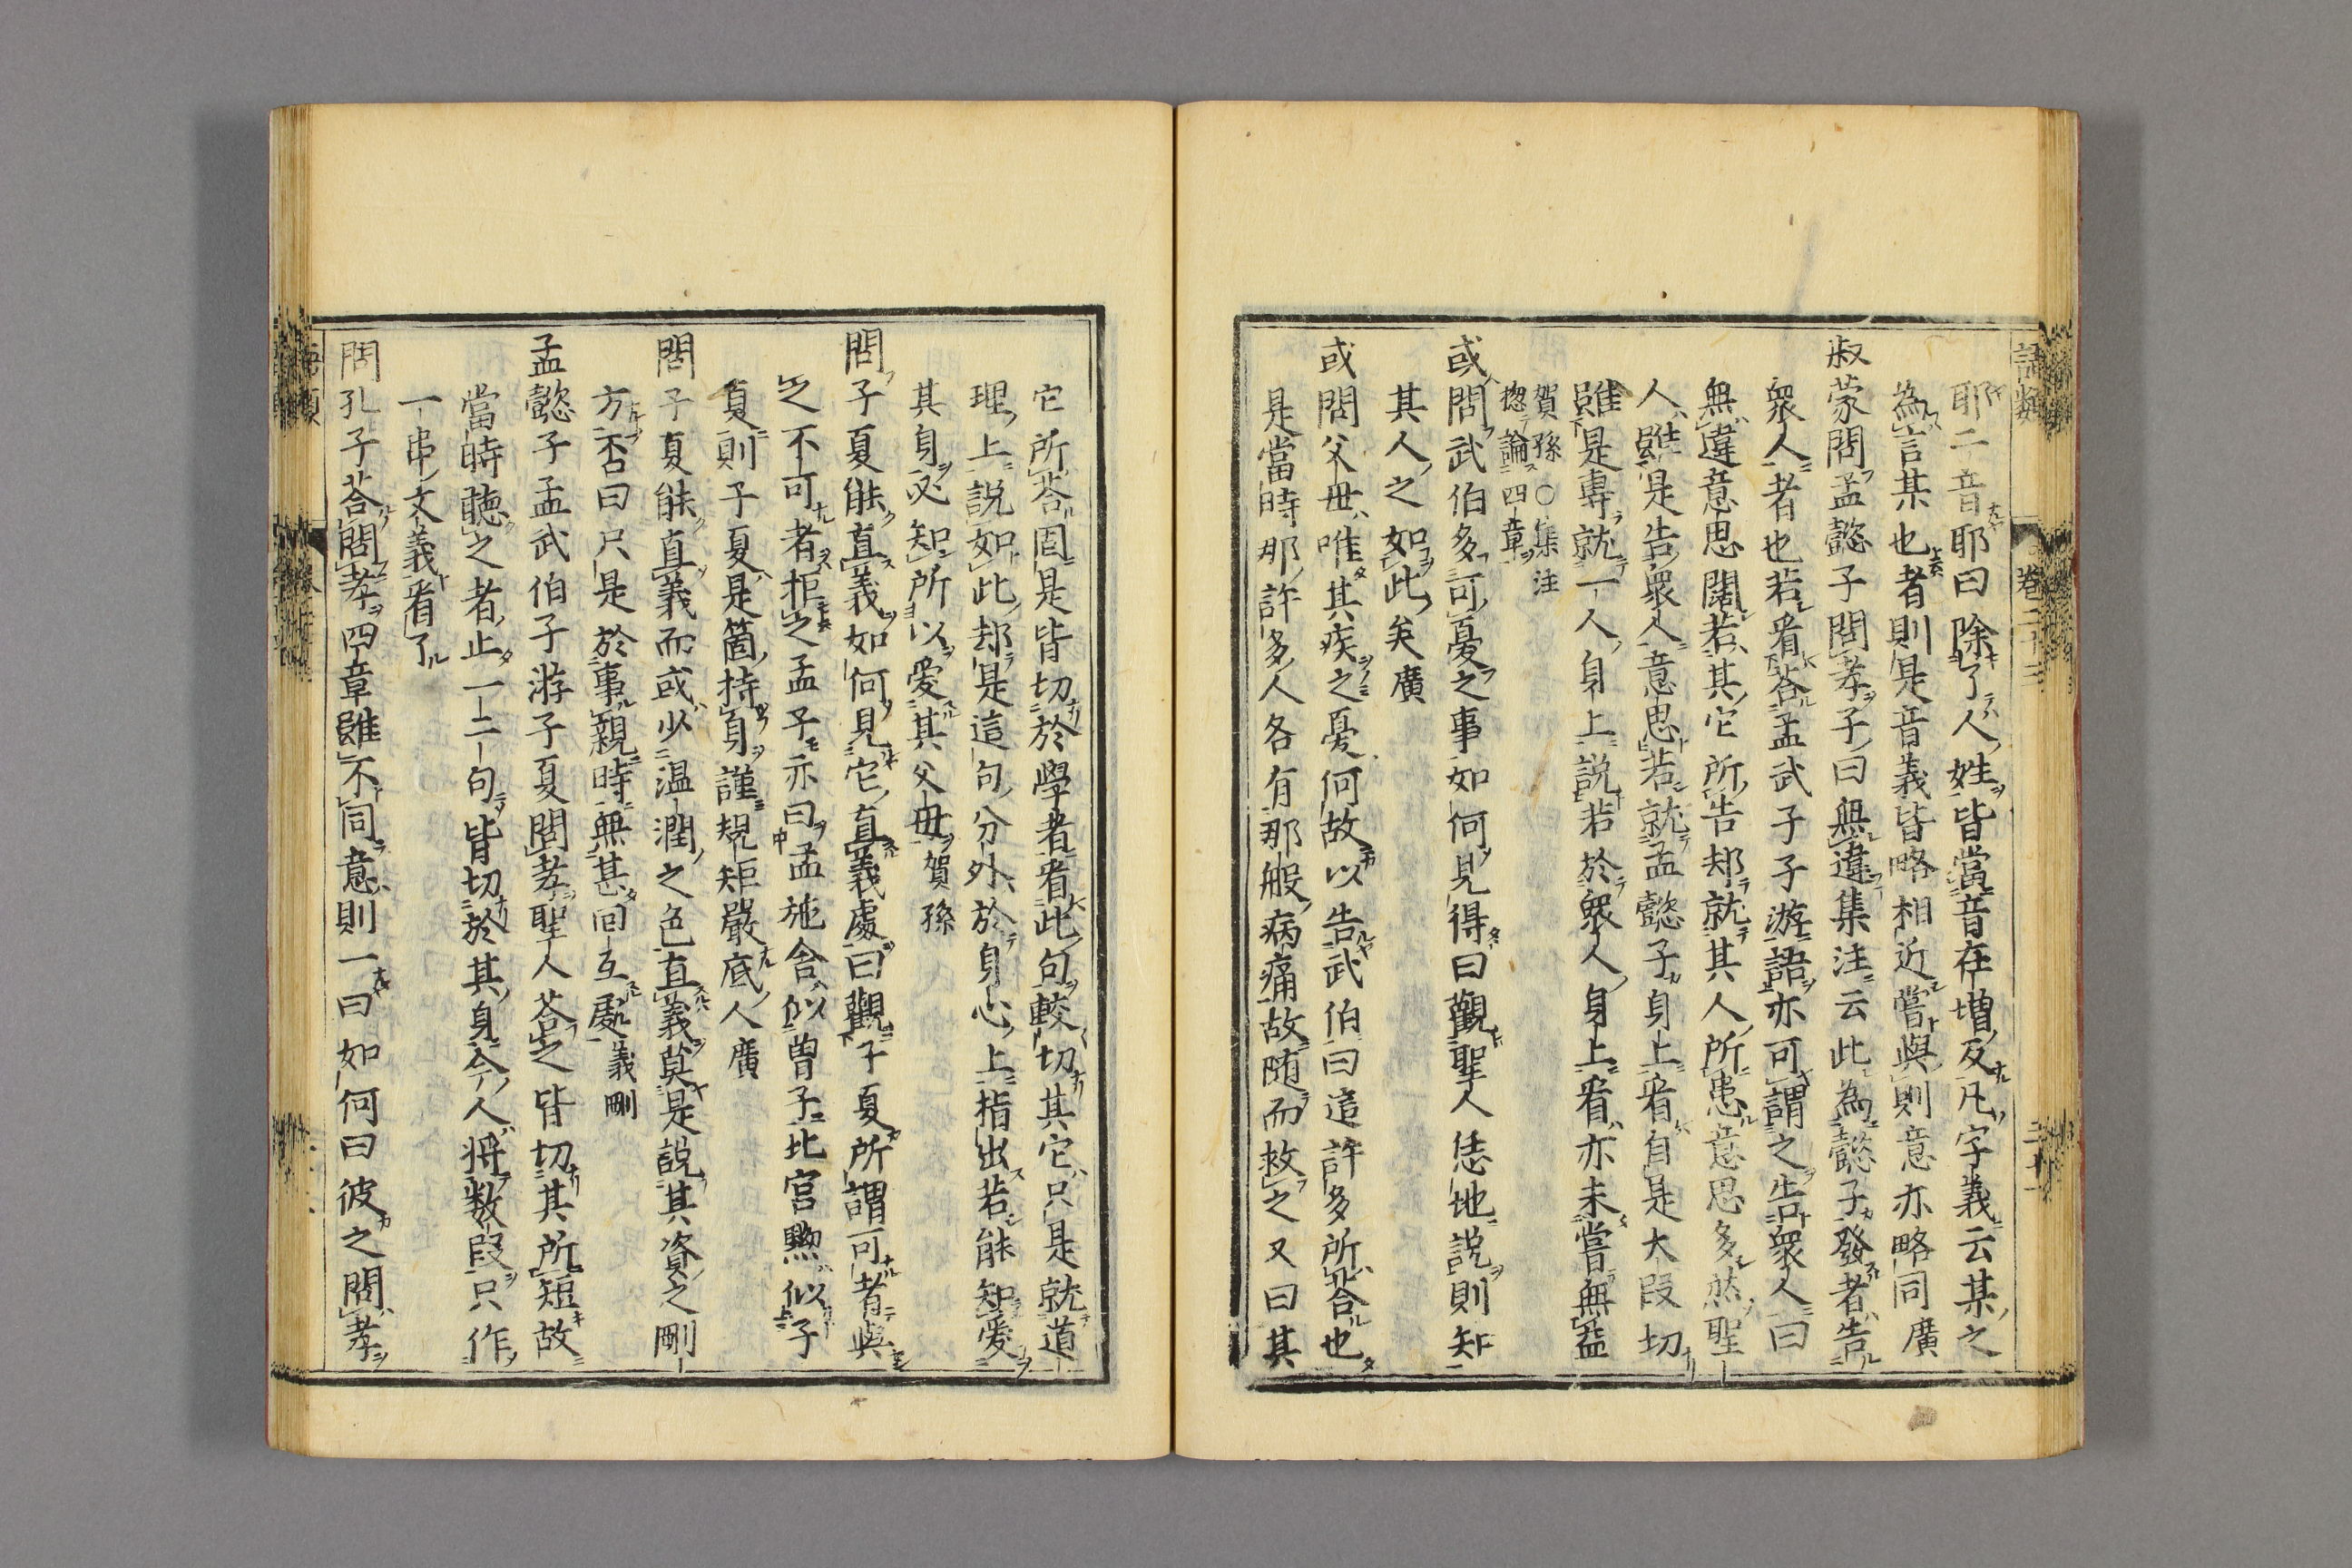 語類
卷二十三
耶二音耶曰除了人姓皆當音在増反凡字義云某之
為言某也者則是音義皆略相近嘗與則意亦略同廣
叔蒙問孟懿子問孝子曰無違集注云此為懿子發者告
衆人者也若看荅孟武子子游語亦可謂之告衆人曰
無違意思闊若其它所告却就其人所患意思多然聖
人雖是告衆人意思若就孟懿子身上看自是大段切
雖是專就一人身上説若於衆人身上看亦未嘗無益
賀孫○集注
揔論四章
或問武伯多可憂之事如何見得曰觀聖人恁地説則知
其人之如此矣廣
或問父母唯其疾之憂何故以告武伯曰這許多所荅也
是當時那許多人各有那般病痛故随而救之又曰其
它所荅固是皆切於學者看此句較切其它只是就道
理上説如此却是這句分外於身心上指出若能知愛
其身必知所以愛其父母賀孫
問子夏能直義如何見它直義處曰觀子夏所謂可者與
之不可者拒之孟子亦曰孟施舎似曽子北宮黝似子
夏則子夏是箇持身謹規矩嚴底人廣
問子夏能直義而或少温潤之色直義莫是説其資之剛
方否曰只是於事親時無甚回互處義剛
孟懿子孟武伯子游子夏問孝聖人荅之皆切其所短故
當時聴之者止一二句皆切於其身今人将数段只作
一串文義看了
問孔子荅問孝四章雖不同意則一曰如何曰彼之問孝